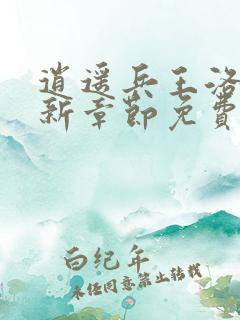 逍遥兵王洛
新章節免費
白纪年
未经同意禁止转载